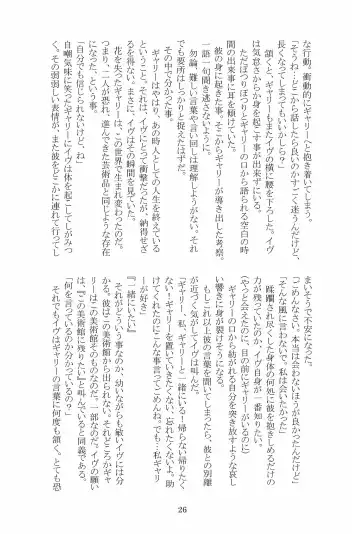 な行動。衝動的にギャリーへと抱き着いてしまう。
「そうね…どこから話したら良いのかすごく迷うんだけど、
長くなってしまってもいいかしら？」
頷くと、ギャリーもまたイヴの横に腰を下ろした。イヴ
は気怠さから身を起こす事が出来ずにいる。
ただぽつりぽつりとギャリーの口から語られる空白の時
間の出来事に耳を傾けていた。
彼の身に起きた事、そこからギャリーが導き出した考察。
一語一句聞き逃さないように。
勿論、難しい言葉や言い回しは理解しようがない。それ
でも要所はしっかりと捉えたはずだ。
その中で分かった事。
ギャリーはやはり、あの時人としての人生を終えている
ということ。それは、イヴにとって衝撃だったが、納得せざ
るを得ない。まさに、イヴはその瞬間を見ていた。
花を失ったギャリーは、この世界で生まれ変わったのだ。
つまり、二人が恐れ、進んできた芸術品と同じような存在
になった、という事。
「自分でも信じられないけど、ね」
自嘲気味に笑ったギャリーにイヴは体を起こしてしがみつ
く。その弱弱しい表情が、また彼をどこかに連れて行ってし
まいそうで不安になった。
「ごめんなさい。本当は会わないほうが良かったんだけど」
「そんな風に言わないで。私は会いたかった」
蹂躙され尽くした身体の何処に彼を抱きしめるだけの
力が残っていたのか、イヴ自身が一番知りたい。
（やっと会えたのに、目の前にギャリーがいるのに）
ギャリーの口から紡がれる自分を突き放すような哀し
い響きに身が裂けそうになる。
もしこれ以上彼の言葉を聞いてしまったら、彼との別離
が近づく気がしてイヴは叫んだ。
「ギャリー、私、ギャリーと一緒にいる！帰らない帰りたく
ない！ギャリーを置いていきたくない、忘れたくないよ。助
けてくれたのにこんな事言ってごめんね。でも…私ギャリ
ーが好き」
『一緒にいたい』
それがどういう事なのか、幼いながらも敏いイヴには分
かる。彼はこの美術館から出られない。それどころかギャ
リーはこの美術館そのものなのだ。一部なのだ。イヴの願い
は、『この美術館に残りたい』と叫んでいると同義である。
「何を言っているのか分かっているの？」
それでもイヴはギャリーの言葉に何度も頷く。とても恐
26